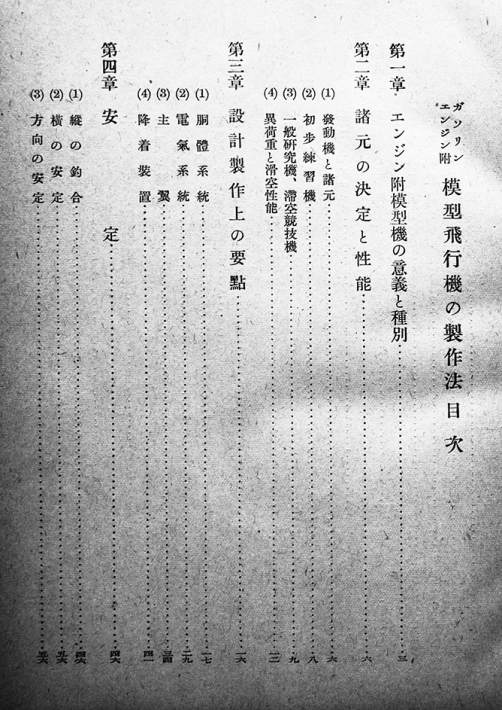 ガソリン
エンジン附 模型飛行機の製作法目次
第一章 エンジン附模型機の意義と種別 三
第二章 諸元の決定と性能 六
(1) 發動機と諸元 六
(2) 初步練習機 八
(3) 一般硏究機、滯空競技機 九
(4) 異荷重と滑空性能 一二
第三章 設計製作上の要點 一六
(1) 胴體系統 一七
(2) 電氣系統 二九
(3) 主翼 三四
(4) 降着裝置 四一
第四章 安定 四六
(1) 縱の釣合 四六
(2) 橫の安定 五六
(3) 方向の安定 五六